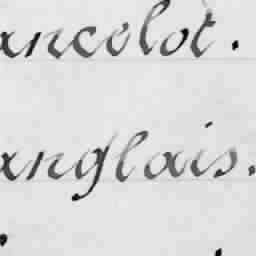 ancelot.
anglais.